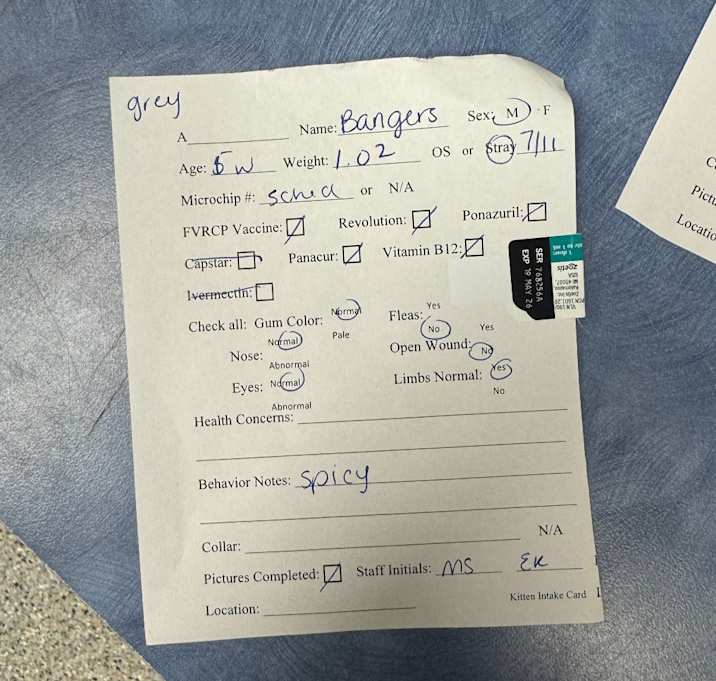 grey
A Name: Bangers Sex: M · F
Age: 5 w Weight: 1.02 OS or Stray 7/11
Microchip #: sched or N/A
FVRCP Vaccine: Revolution: Ponazuril:
Capstar: Panacur: Vitamin B12:
Ivermectin:
SER 768256A
EXP 19 MAY 26
zoetis
Check all: Gum Color: Normal Pale Fleas: Yes No
Nose: Normal Abnormal Open Wound: Yes No
Eyes: Normal Abnormal Limbs Normal: Yes No
Health Concerns:
Behavior Notes: Spicy
Collar: N/A
Pictures Completed: Staff Initials: MS EK
Location:
Kitten Intake Card
Locatio